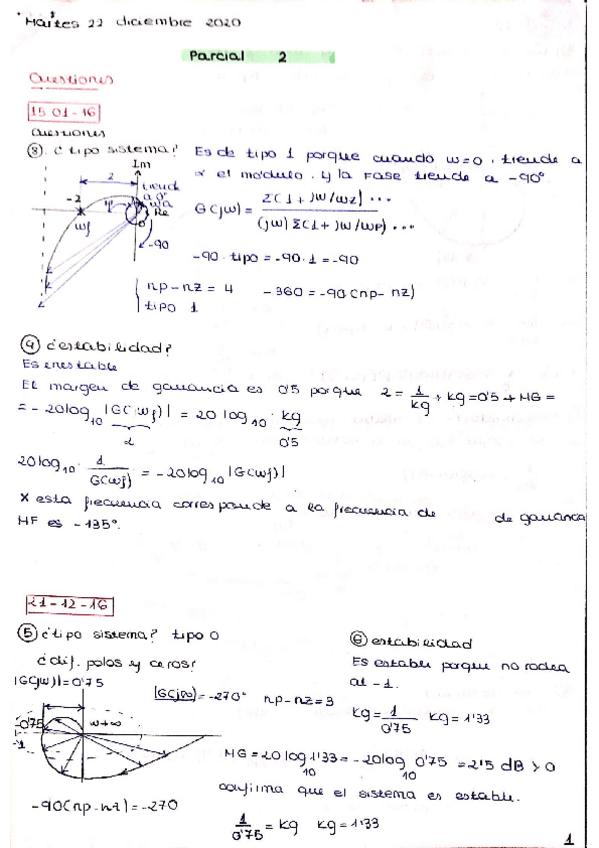 Martes 22 diciembre 2020
Parcial 2
Cuestiones
15 01-16
Cuestiones
⑧. ¿ tipo sistema? Es de tipo 1 porque cuando w=0, tiende a
∝ el modulo. y la Fase tiende a -90º
Im
2
tiende
a 0
-2
Re
wf
0
-90
G(jw) = Σ(1 + jw/wz) ...
(jw) Σ(1 + jw/wp) ...
-90 · tipo = -90 · 1 = -90
np - nz = 4 -360 = -90(np - nz)
tipo 1
④ ¿estabilidad?
Es inestable
El margen de ganancia es 0'5 porque 2 = 1/kg → kg = 0'5 → MG =
= - 20log10 |G(wf)| = 20 log10 · kg
2 0'5
20log10 · 1/G(wf) = - 20log10 |G(wf)|
x esta frecuencia corresponde a la frecuencia de de ganancia
MF es - 135º.
21-12-16
⑤ ¿tipo sistema? tipo 0
¿dif. polos y ceros?
|G(jw)| = 0'75
|G(j∞) = -270º np - nz = 3
-0'75
w→∞
-1
-90(np - nz) = -270
⑥ estabilidad
Es estable porque no rodea
al -1.
kg = 1/0'75 kg = 1'33
MG = 20 log10 1'33 = - 20log10 0'75 = 2'5 dB > 0
confirma que el sistema es estable.
1/0'75 = kg kg = 1'33
1